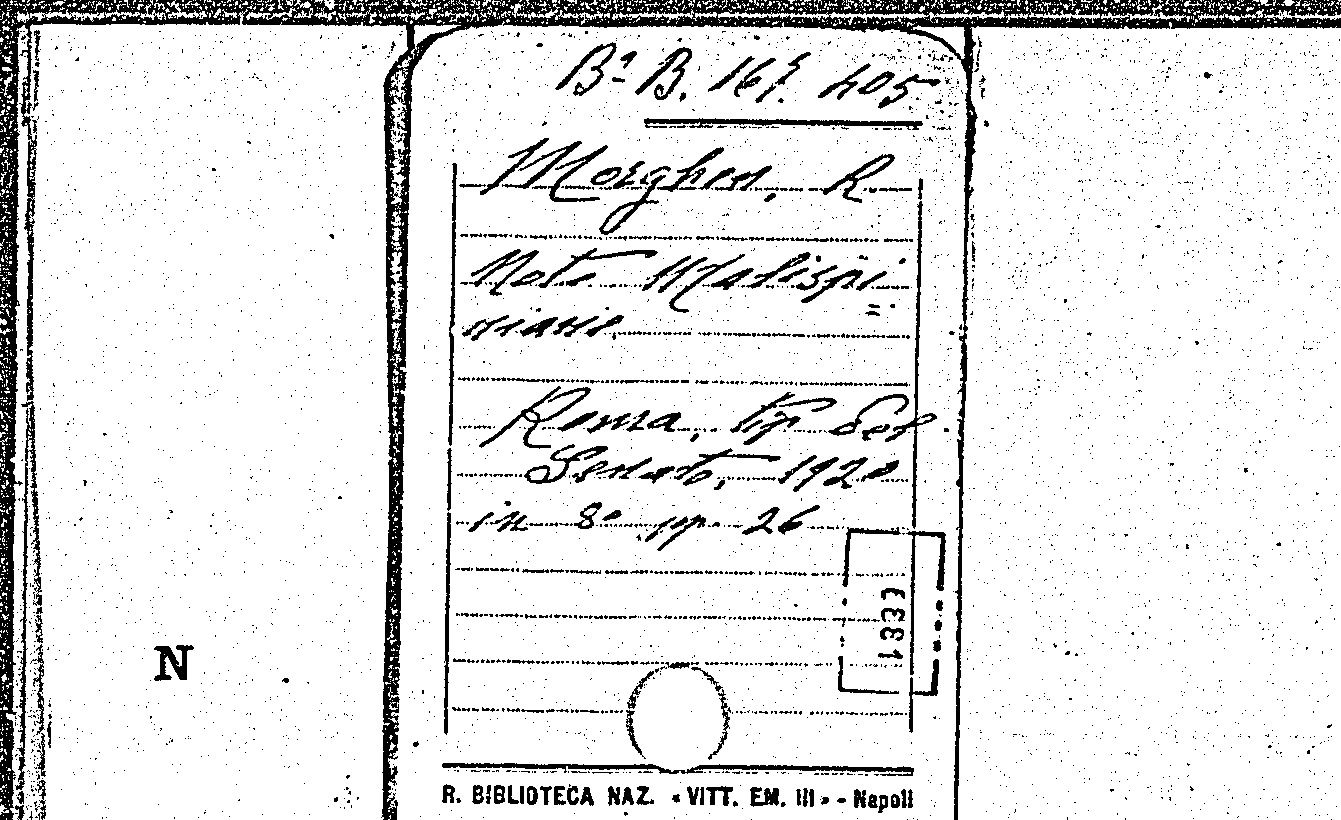 Bª B. 169. 405
Morghen, R
Note Malispi=
niane.
Roma, tip del
Senato, 1920
in 8° pp. 26
N
R. BIBLIOTECA NAZ. «VITT. EM. III» - Napoli